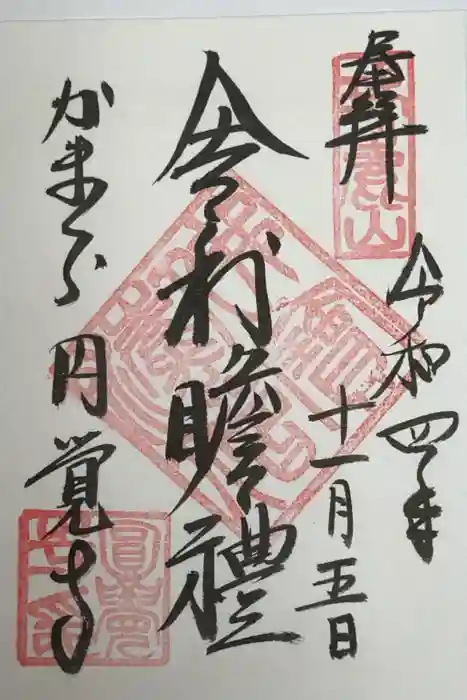 奉拝
瑞鹿山
令和四年
十一月五日
舎利瞻禮
かまくら 円覚寺